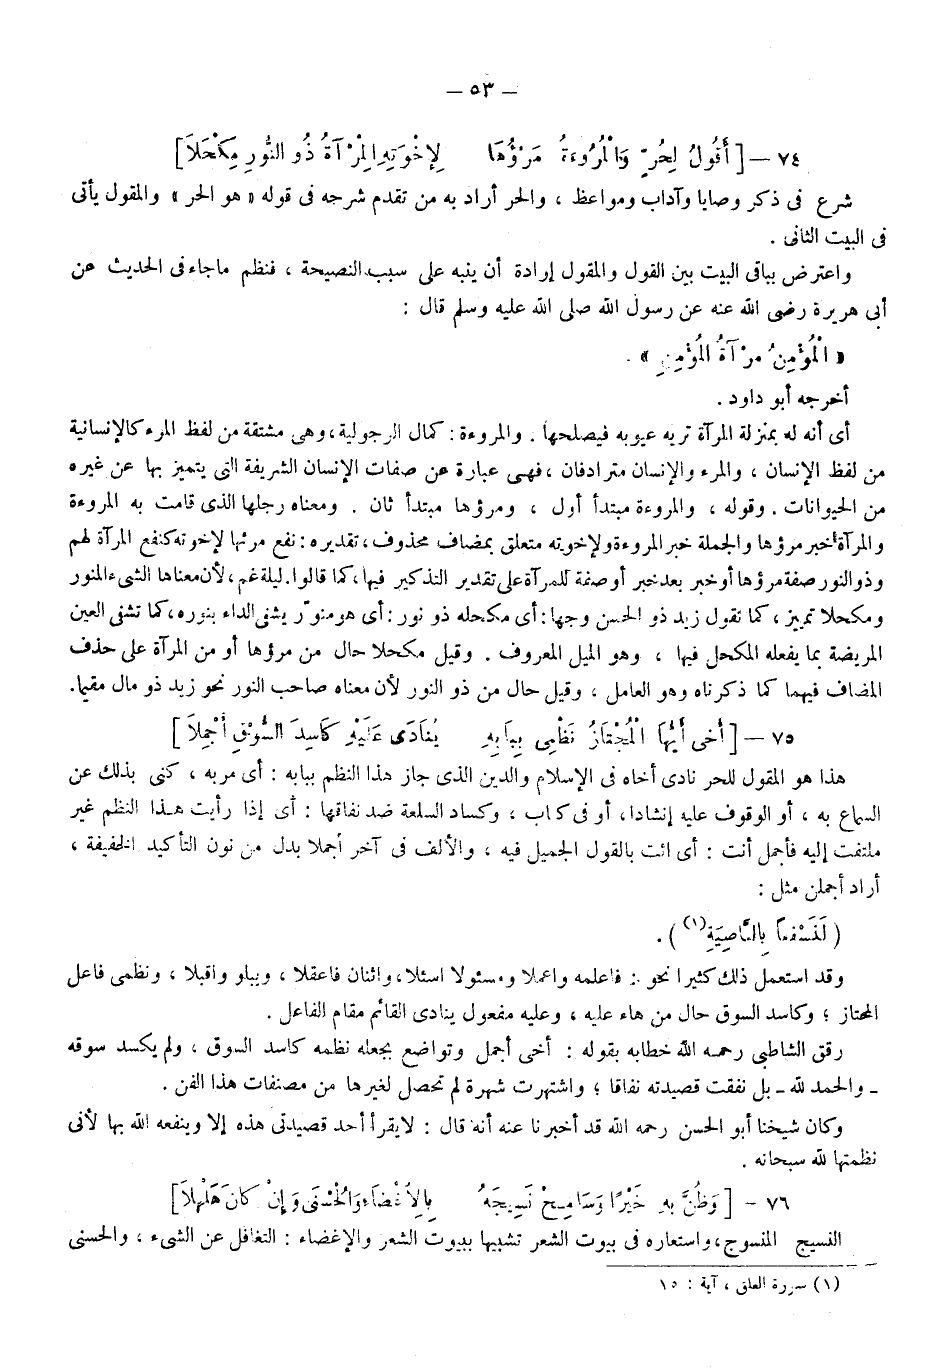 — ٥٣ —
٧٤ — [أَقُولُ لِحُرٍّ وَالْمُرُوءَةُ مَرْؤُهَا لِإِخْوَتِهِ الْمِرْآةُ ذُو النُّورِ مِكْحَلاَ]
شرع فى ذكر وصايا وآداب ومواعظ ، والحر أراد به من تقدم شرحه فى قوله « هو الحر » والمقول يأتى
فى البيت الثانى .
واعترض بباقى البيت بين القول والمقول إرادة أن ينبه على سبب النصيحة ، فنظم ماجاء فى الحديث عن
أبى هريرة رضى الله عنه عن رسول الله صلى الله عليه وسلم قال :
« الْمُؤْمِنُ مِرْآةُ الْمُؤْمِنِ » .
أخرجه أبو داود .
أى أنه له بمنزلة المرآة تريه عيوبه فيصلحها . والمروءة : كمال الرجولية ، وهى مشتقة من لفظ المرء كالإنسانية
من لفظ الإنسان ، والمرء والإنسان مترادفان ، فهى عبارة عن صفات الإنسان الشريفة التى يتميز بها عن غيره
من الحيوانات . وقوله ، والمروءة مبتدأ أول ، ومرؤها مبتدأ ثان . ومعناه رجلها الذى قامت به المروءة
والمرآة خبر مرؤها والجملة خبر المروءة ولإخوته متعلق بمضاف محذوف ، تقديره : نفع مرئها لإخوته كنفع المرآة لهم
وذو النور صفة مرؤها أو خبر بعد خبر أو صفة للمرآة على تقدير التذكير فيها ، كما قالوا . ليلة غم ، لأن معناها الشىء المنور
ومكحلا تمييز ، كما تقول زيد ذو الحسن وجها : أى مكحله ذو نور : أى هو منوّر يشفى الداء بنوره ، كما تشفى العين
المريضة بما يفعله المكحل فيها ، وهو الميل المعروف . وقيل مكحلا حال من مرؤها أو من المرآة على حذف
المضاف فيهما كما ذكرناه وهو العامل ، وقيل حال من ذو النور لأن معناه صاحب النور نحو زيد ذو مال مقيما.
٧٥ — [أَخِى أَيُّهَا الْمُجْتَازُ نَظْمِى بِبَابِهِ يُنَادَى عَلَيْهِ كَاسِدَ السُّوقِ أَجْمِلاَ]
هذا هو المقول للحر نادى أخاه فى الإسلام والدين الذى جاز هذا النظم ببابه : أى مر به ، كنى بذلك عن
السماع به ، أو الوقوف عليه إنشادا ، أو فى كتاب ، وكساد السلعة ضد نفاقها : أى إذا رأيت هذا النظم غير
ملتفت إليه فأجمل أنت : أى ائت بالقول الجميل فيه ، والألف فى آخر أجملا بدل من نون التأكيد الخفيفة ،
أراد أجملن مثل :
(لَنَسْفَعاً بِالنَّاصِيَةِ(١)) .
وقد استعمل ذلك كثيرا نحو : فاعلمه واعملا ومسئولا اسئلا ، واثنان فاعقلا ، ويبلو واقبلا ، ونظمى فاعل
المجتاز ؛ وكاسد السوق حال من هاء عليه ، وعليه مفعول ينادى القائم مقام الفاعل .
رقق الشاطبى رحمه الله خطابه بقوله : أخى أجمل وتواضع بجعله نظمه كاسد السوق ، ولم يكسد سوقه
ـ والحمد لله ـ بل نفقت قصيدته نفاقا ؛ واشتهرت شهرة لم تحصل لغيرها من مصنفات هذا الفن .
وكان شيخنا أبو الحسن رحمه الله قد أخبرنا عنه أنه قال : لا يقرأ أحد قصيدتى هذه إلا وينفعه الله بها لأنى
نظمتها لله سبحانه .
٧٦ - [وَظُنَّ بِهِ خَيْرًا وَسَامِحْ نَسِيجَهُ بِالِاغْضَاءِ وَالْحُسْنَى وَإِنْ كَانَ هَلْهَلاَ]
النسيج المنسوج ، واستعاره فى بيوت الشعر تشبيها ببيوت الشعر والإغضاء : التغافل عن الشىء ، والحسنى
(١) سورة العلق ، آية : ١٥